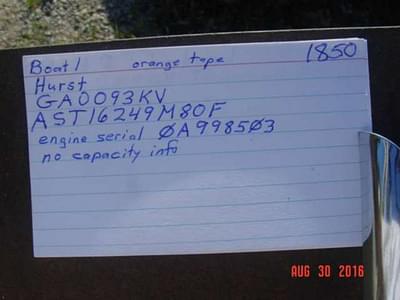 Boat 1 orange tape 1850
Hurst
GA0093KV
AST16249M80F
engine serial ØA9985Ø3
no capacity info
AUG 30 2016